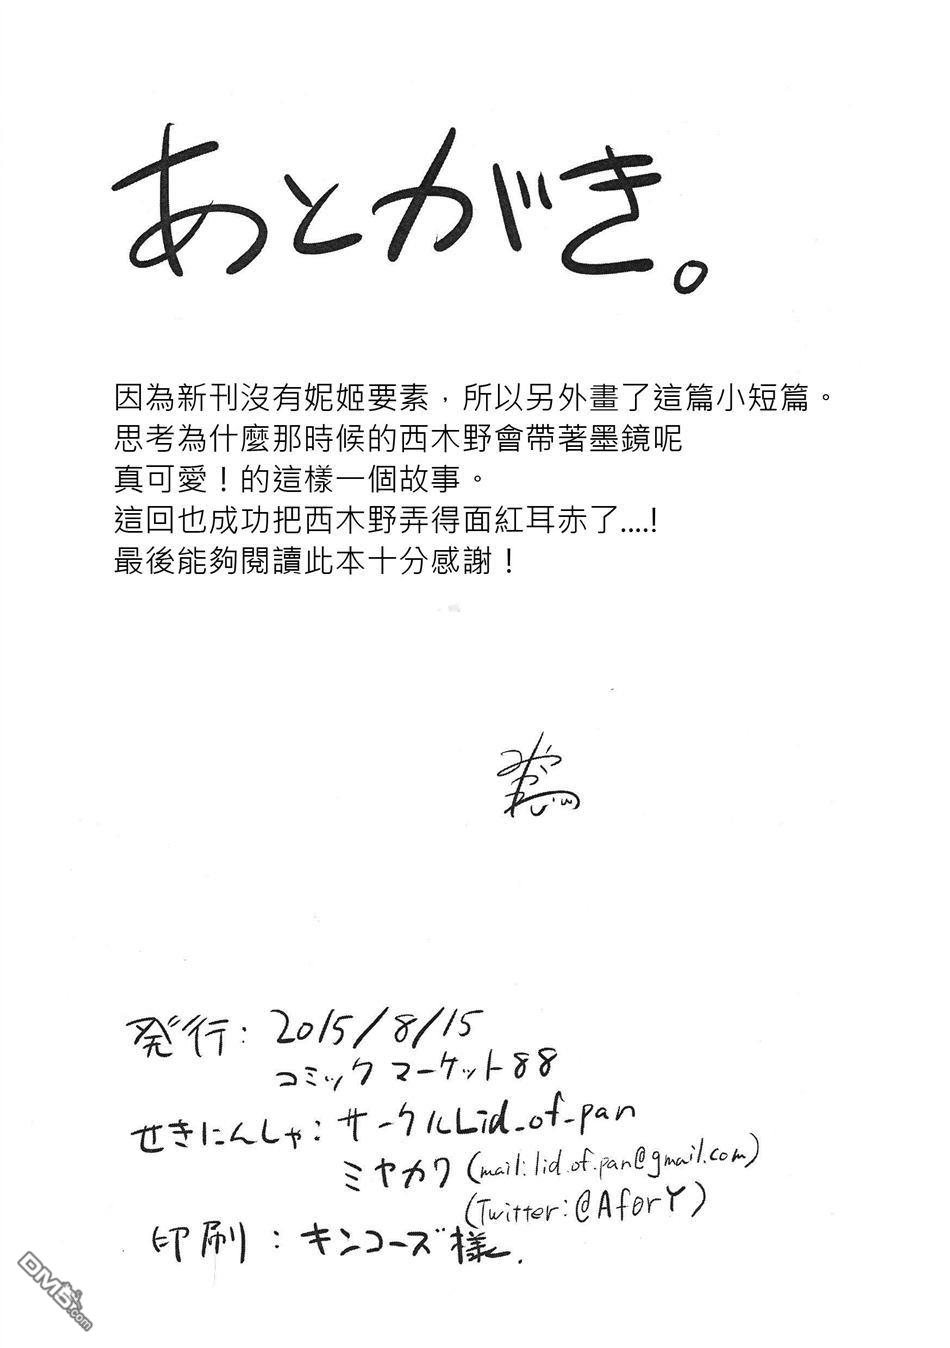 あとがき。
因為新刊沒有妮姬要素，所以另外畫了這篇小短篇。
思考為什麼那時候的西木野會帶著墨鏡呢
真可愛！的這樣一個故事。
這回也成功把西木野弄得面紅耳赤了....!
最後能夠閱讀此本十分感謝！
発行：2015/8/15
コミックマーケット88
せきにんしゃ：サークルLid_of_pan
ミヤカワ(mail:lid.of.pan@gmail.com)
(Twitter:@AforY)
印刷：キンコーズ様.
DM5